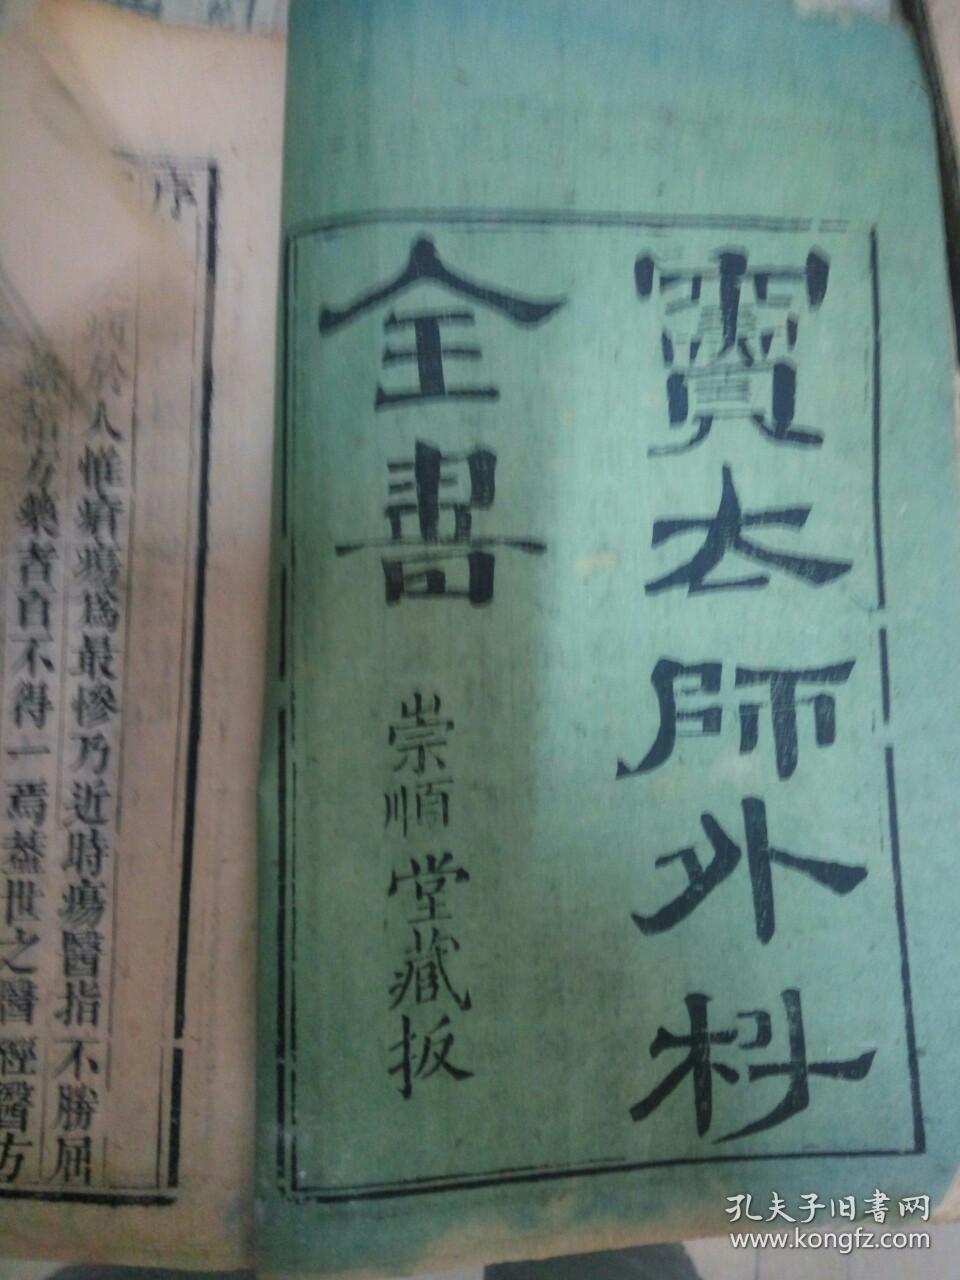 竇太師外科
全書
崇順堂藏板
序
於人惟癰瘍爲最慘乃近時瘍醫指不勝屈
方藥者自不得一焉蓋世之醫經醫方
孔夫子旧書网
www.kongfz.com